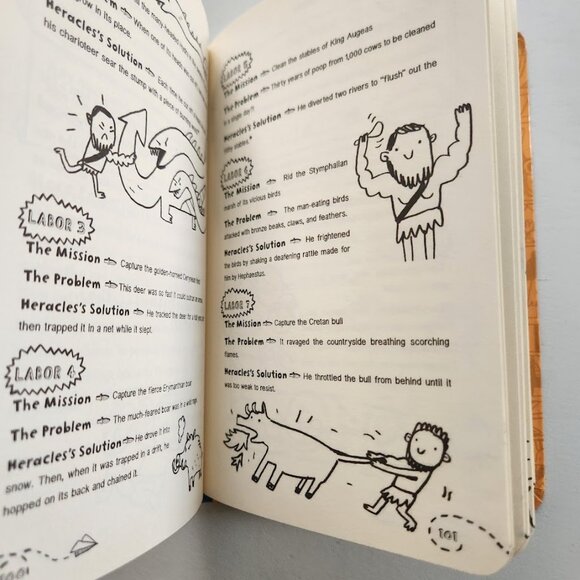 grow in its place.
The Problem When one of its heads was
Heracles's Solution Each time he cut
his charioteer sear the stump with a piece of burning
LABOR 3
The Mission Capture the golden-horned Ceryneian
The Problem This deer was so fast it could outrun an
Heracles's Solution He tracked the deer for a full
then trapped it in a net while it slept.
LABOR 4
The Mission Capture the fierce Erymanthian boar
The Problem The much-feared boar was in a wild rage.
Heracles's Solution He drove it into
snow. Then, when it was trapped in a drift, he
hopped on its back and chained it.
LABOR 5
The Mission Clean the stables of King Augeas
The Problem Thirty years of poop from 1,000 cows to be cleaned
in a single day!!
Heracles's Solution He diverted two rivers to "flush" out the
filthy stables.*
LABOR 6
The Mission Rid the Stymphalian
marsh of its vicious birds
The Problem The man-eating birds
attacked with bronze beaks, claws, and feathers.
Heracles's Solution He frightened
the birds by shaking a deafening rattle made for
him by Hephaestus.
LABOR 7
The Mission Capture the Cretan bull
The Problem It ravaged the countryside breathing scorching
flames.
Heracles's Solution He throttled the bull from behind until it
was too weak to resist.
101